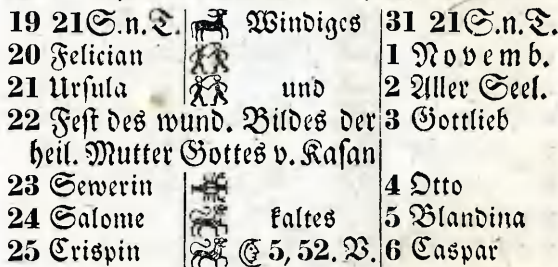 19 21 S.n.T. Windiges 31 21 S.n.T.
20 Felician 1 Novemb.
21 Urſula und 2 Aller Seel.
22 Feſt des wund. Bildes der 3 Gottlieb
heil. Mutter Gottes v. Kaſan
23 Sewerin 4 Otto
24 Salome kaltes 5 Blandina
25 Crispin ☾ 5, 52. V. 6 Caspar